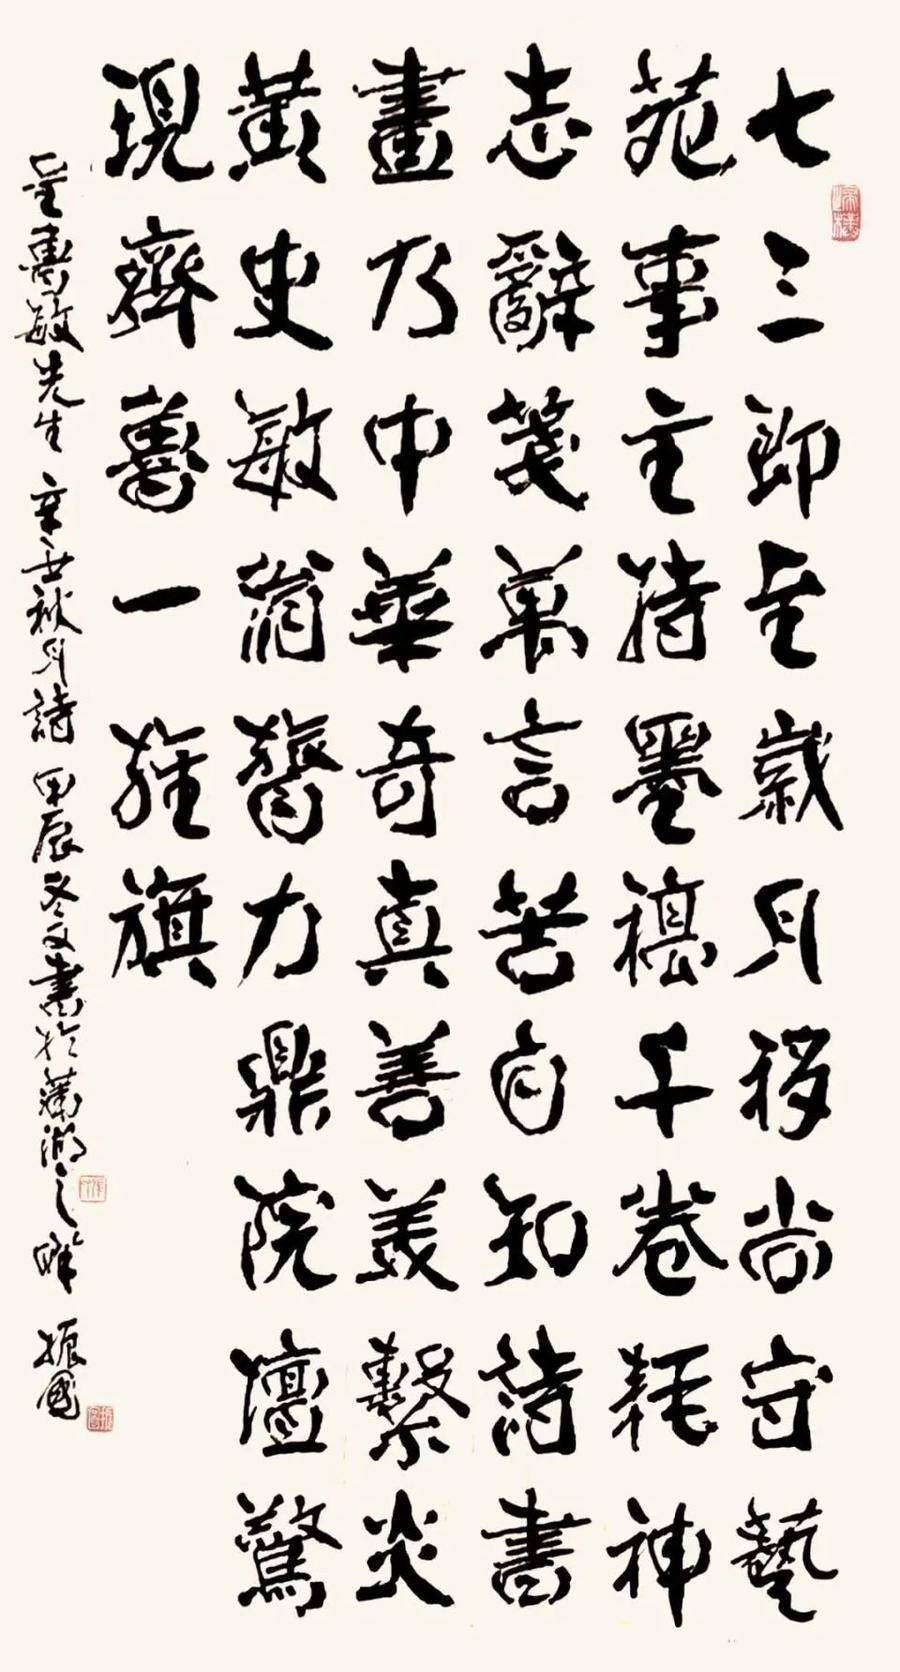 七三即至歲月移尚守藝
苑事主持墨稿千卷耗神
志辭箋萬言苦自知詩書
畫乃中華奇真善美繫炎
黃史敏翁膂力鼎院壇驚
現齊壽一雄旗
呈壽敏先生 辛丑秋月詩 甲辰冬文書於蕭湖之畔 振國